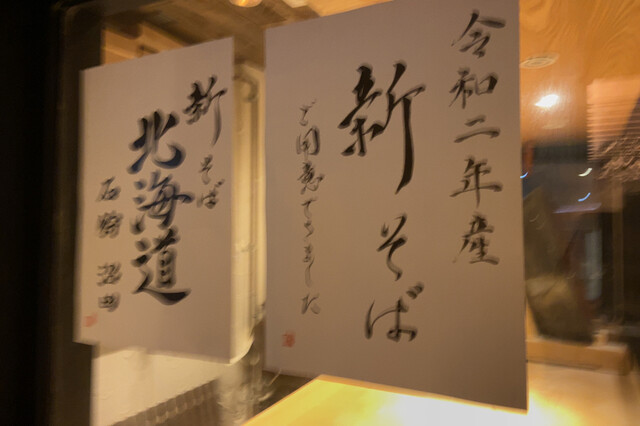 令和二年産
新そば
ご用意できました
新そば
北海道
石狩 沼田